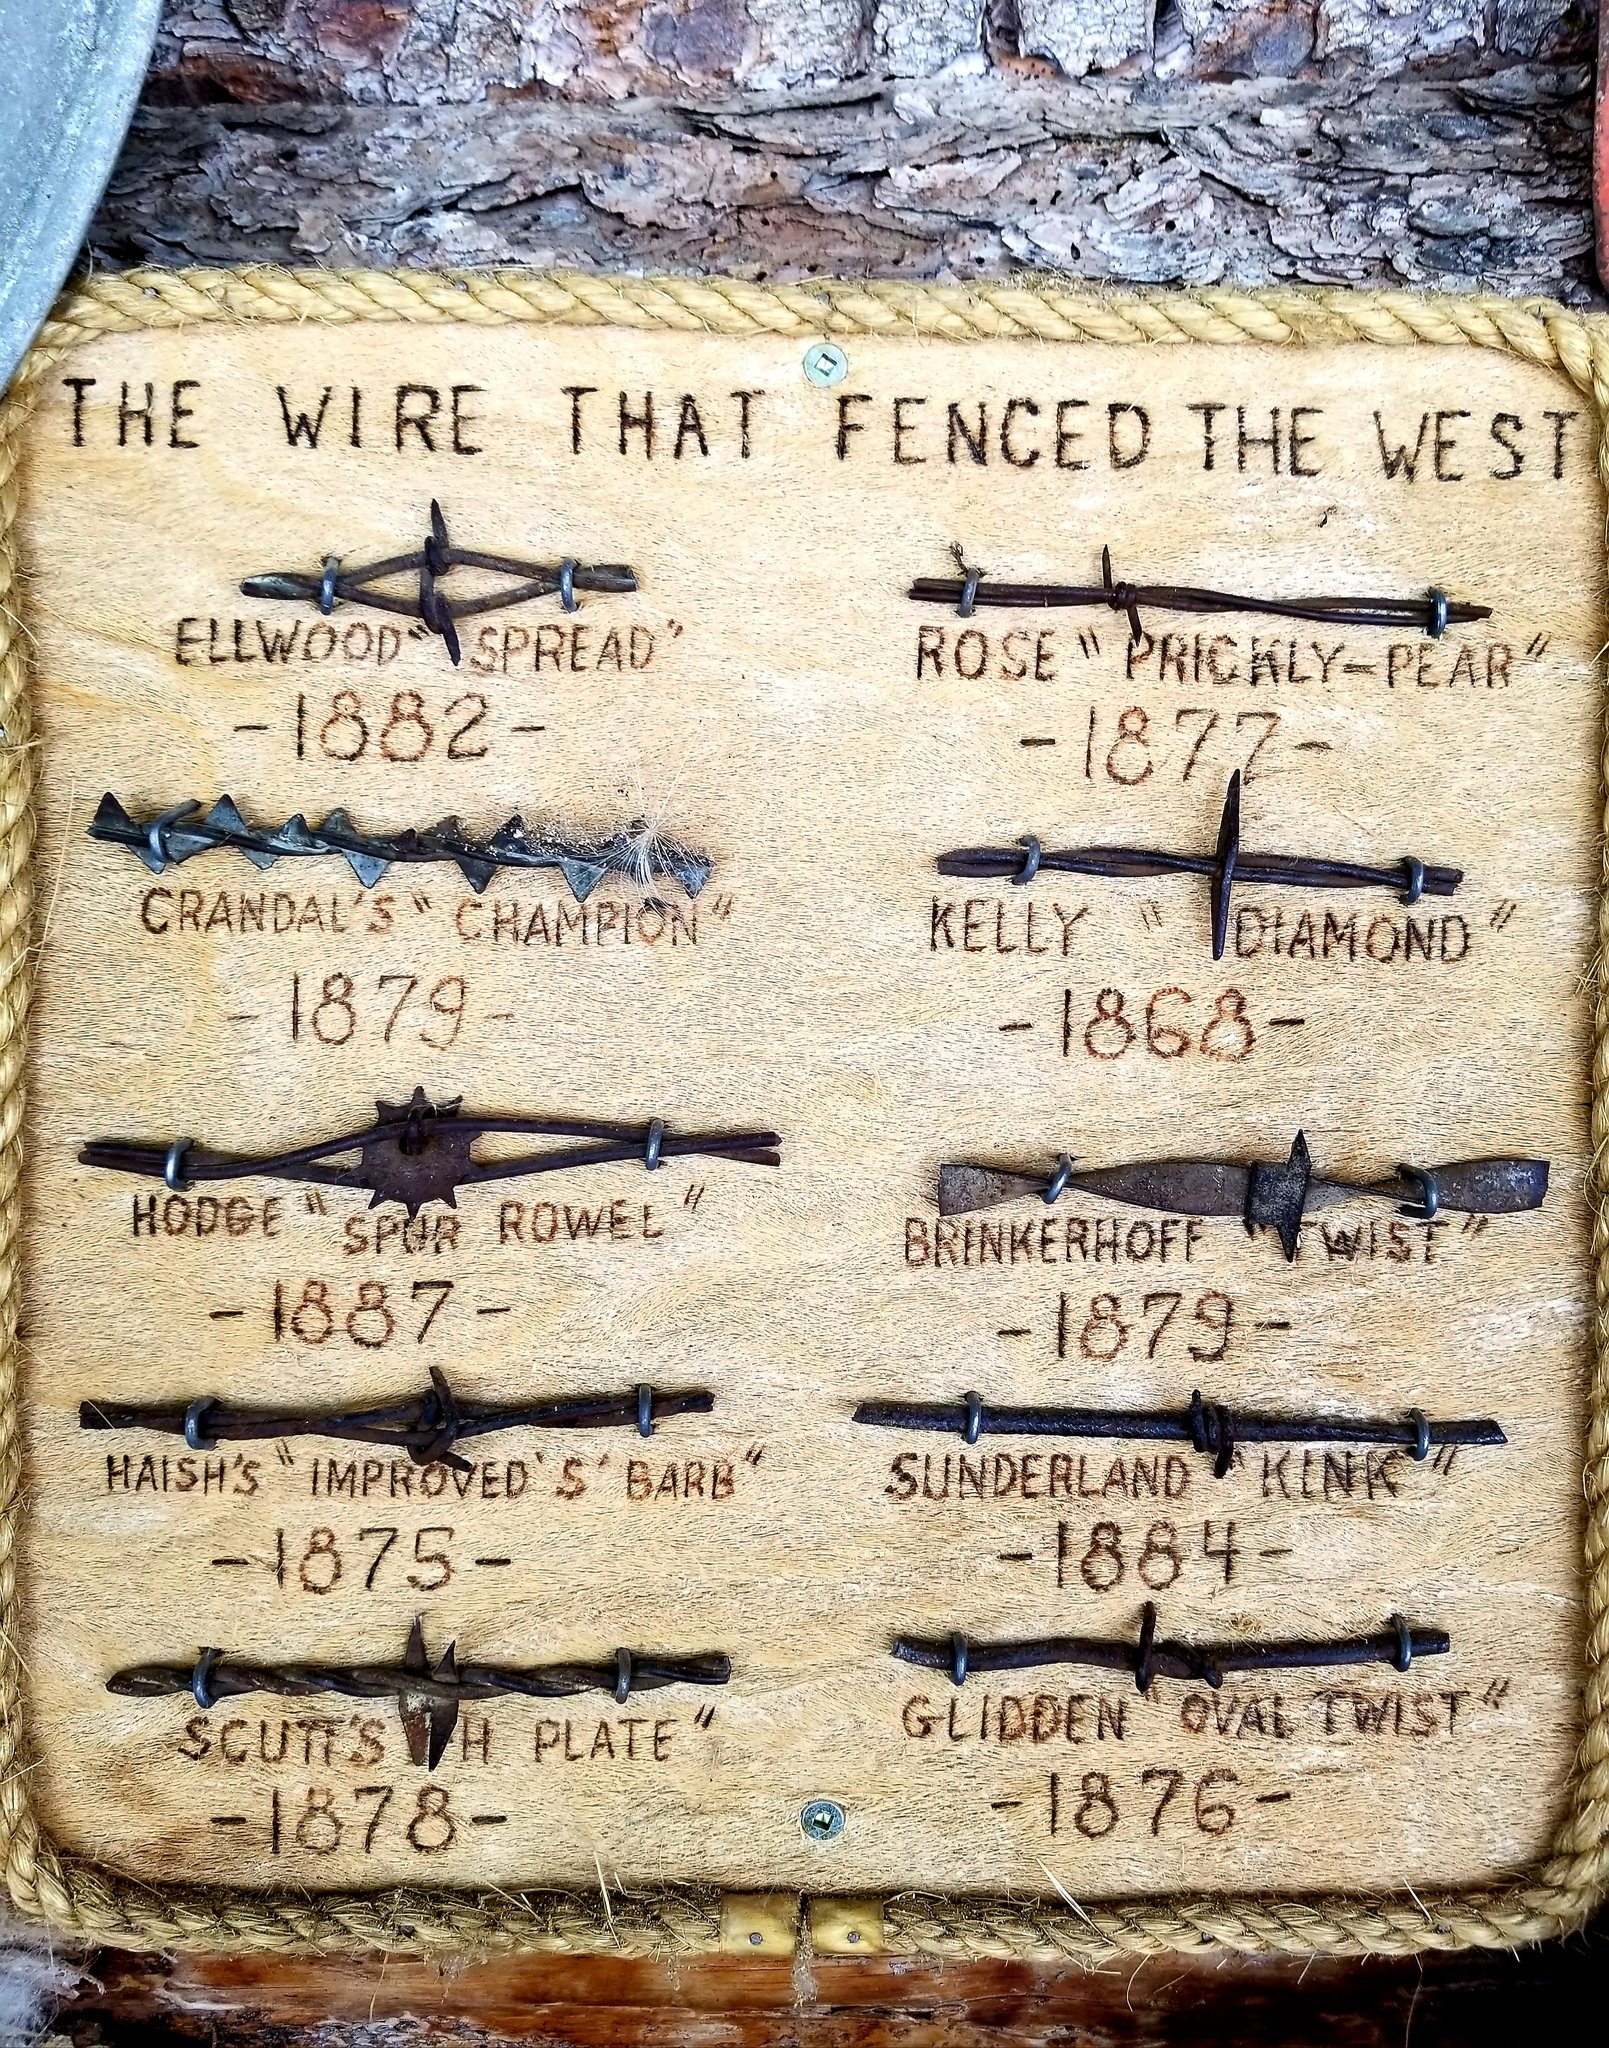 THE WIRE THAT FENCED THE WEST
ELLWOOD "SPREAD"
-1882-
ROSE "PRICKLY-PEAR"
-1877-
CRANDAL'S "CHAMPION"
-1879-
KELLY "DIAMOND"
-1868-
HODGE "SPUR ROWEL"
-1887-
BRINKERHOFF "TWIST"
-1879-
HAISH'S "IMPROVED 'S' BARB"
-1875-
SUNDERLAND "KINK"
-1884-
SCUTT'S "H PLATE"
-1878-
GLIDDEN "OVAL TWIST"
-1876-